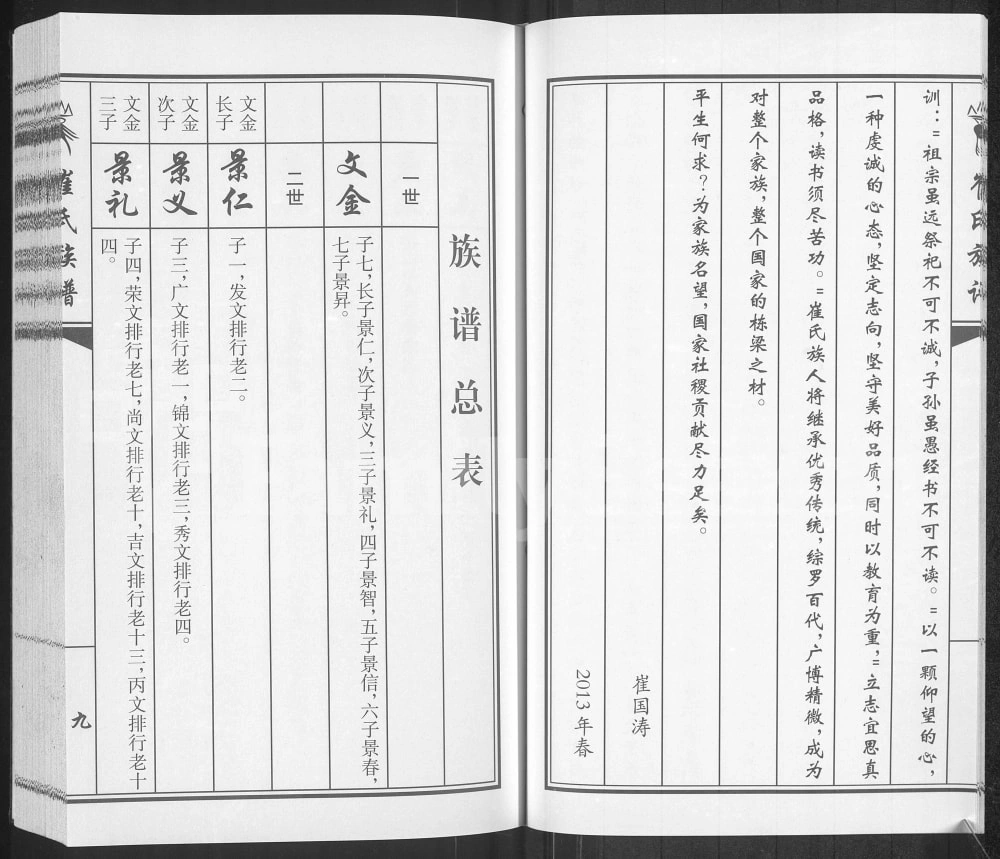 训："祖宗虽远祭祀不可不诚,子孙虽愚经书不可不读。"以一颗仰望的心,
一种虔诚的心态,坚定志向,坚守美好品质,同时以教育为重,"立志宜思真
品格,读书须尽苦功。"崔氏族人将继承优秀传统,综罗百代,广博精微,成为
对整个家族,整个国家的栋梁之材。
平生何求?为家族名望,国家社稷贡献尽力足矣。
崔国涛
2013年春
族谱总表
一世
文金
子七,长子景仁,次子景义,三子景礼,四子景智,五子景信,六子景春,
七子景昇。
二世
文金
长子
景仁
子一,发文排行老二。
文金
次子
景义
子三,广文排行老一,锦文排行老三,秀文排行老四。
文金
三子
景礼
子四,荣文排行老七,尚文排行老十,吉文排行老十三,丙文排行老十
四。
崔氏族谱
九